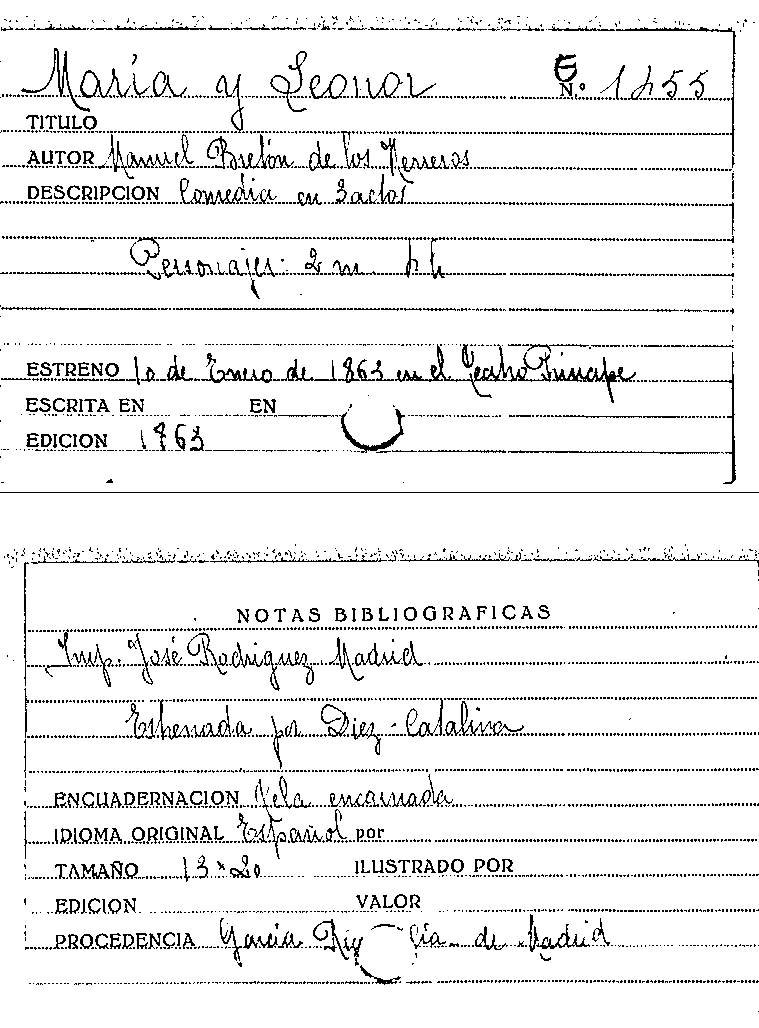 María y Leonor E
N.º 1455
TITULO
AUTOR Manuel Bretón de los Herreros
DESCRIPCION Comedia en 3 actos
Personajes: 2 m. 4 h
ESTRENO 10 de Enero de 1863 en el Teatro Principe
ESCRITA EN EN
EDICION 1863
NOTAS BIBLIOGRAFICAS
Imp. José Rodriguez Madrid
Estrenada por Diez-Catalina
ENCUADERNACION Tela encarnada
IDIOMA ORIGINAL Español por
TAMAÑO 13 x 20 ILUSTRADO POR
EDICION VALOR
PROCEDENCIA García de Madrid